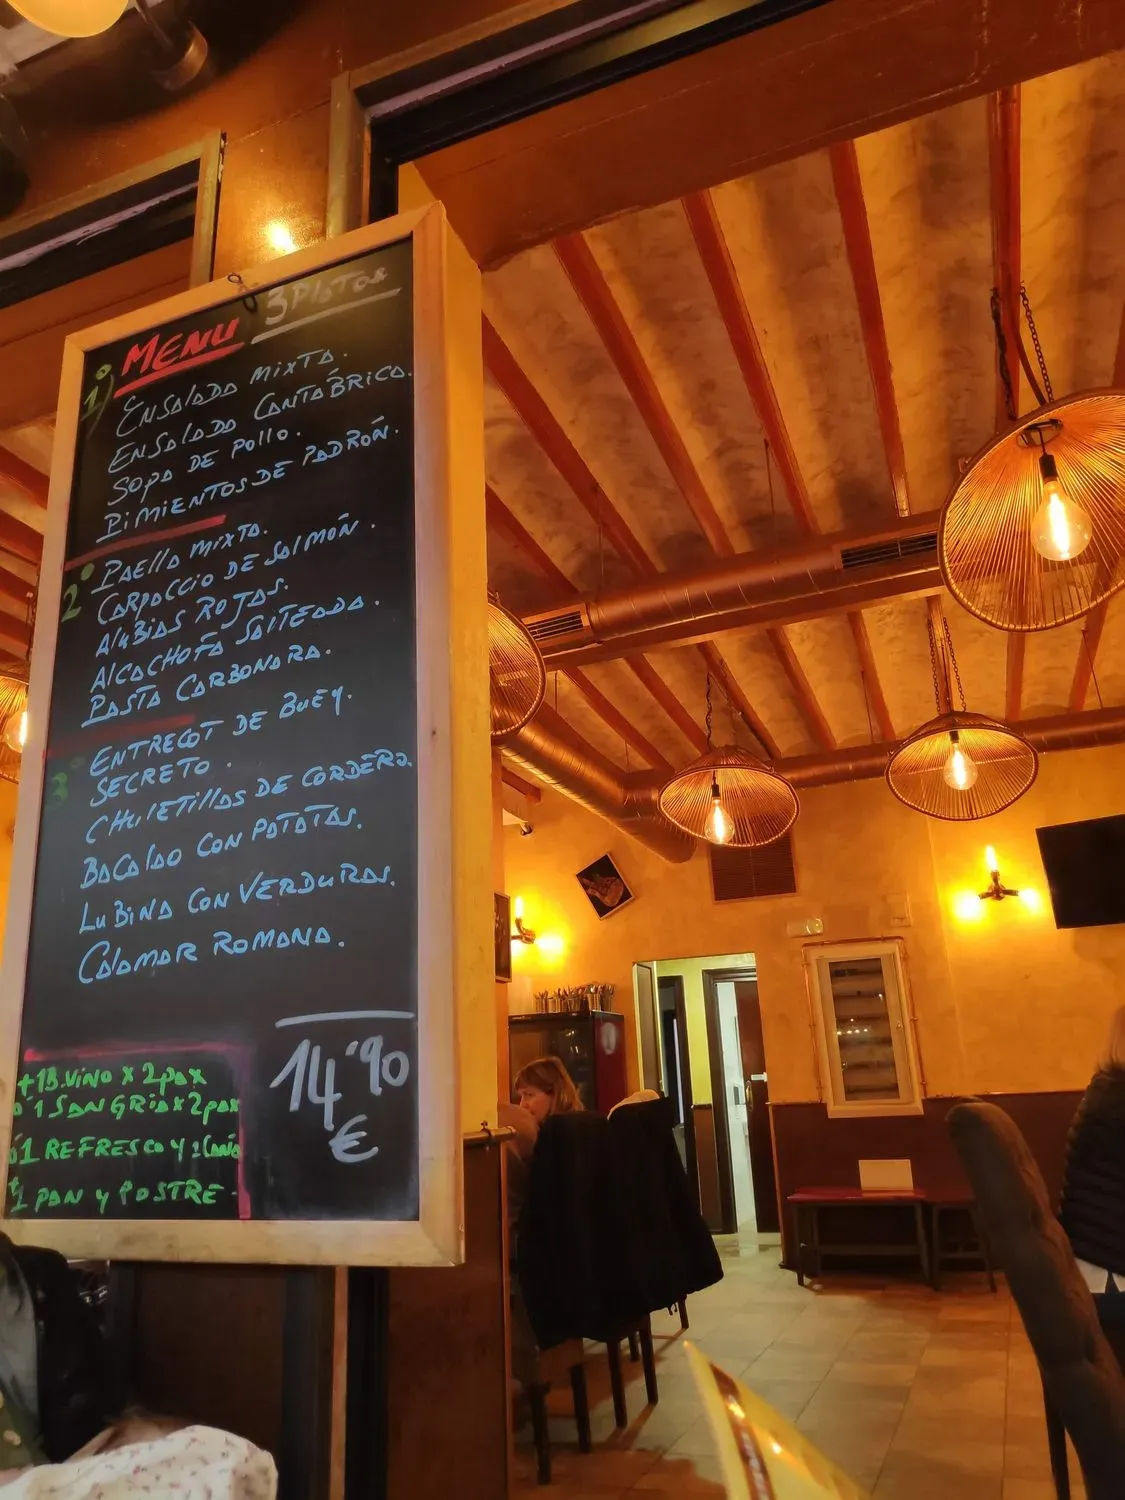 MENU 3 PLATOS
1º
ENSALADA MIXTA.
ENSALADA CANTÁBRICA.
SOPA DE POLLO.
PIMIENTOS DE PADRÓN.
2º
PAELLA MIXTA.
CARPACCIO DE SALMÓN.
ALUBIAS ROJAS.
ALCACHOFA SALTEADA.
PASTA CARBONARA.
3º
ENTRECOT DE BUEY.
SECRETO.
CHULETILLAS DE CORDERO.
BACALAO CON PATATAS.
LUBINA CON VERDURAS.
CALAMAR ROMANA.
14'90
€
+1B.VINO X 2pax
ó 1 SANGRIA X 2pax
ó1 REFRESCO Y 1 CAÑA
+1 PAN Y POSTRE.